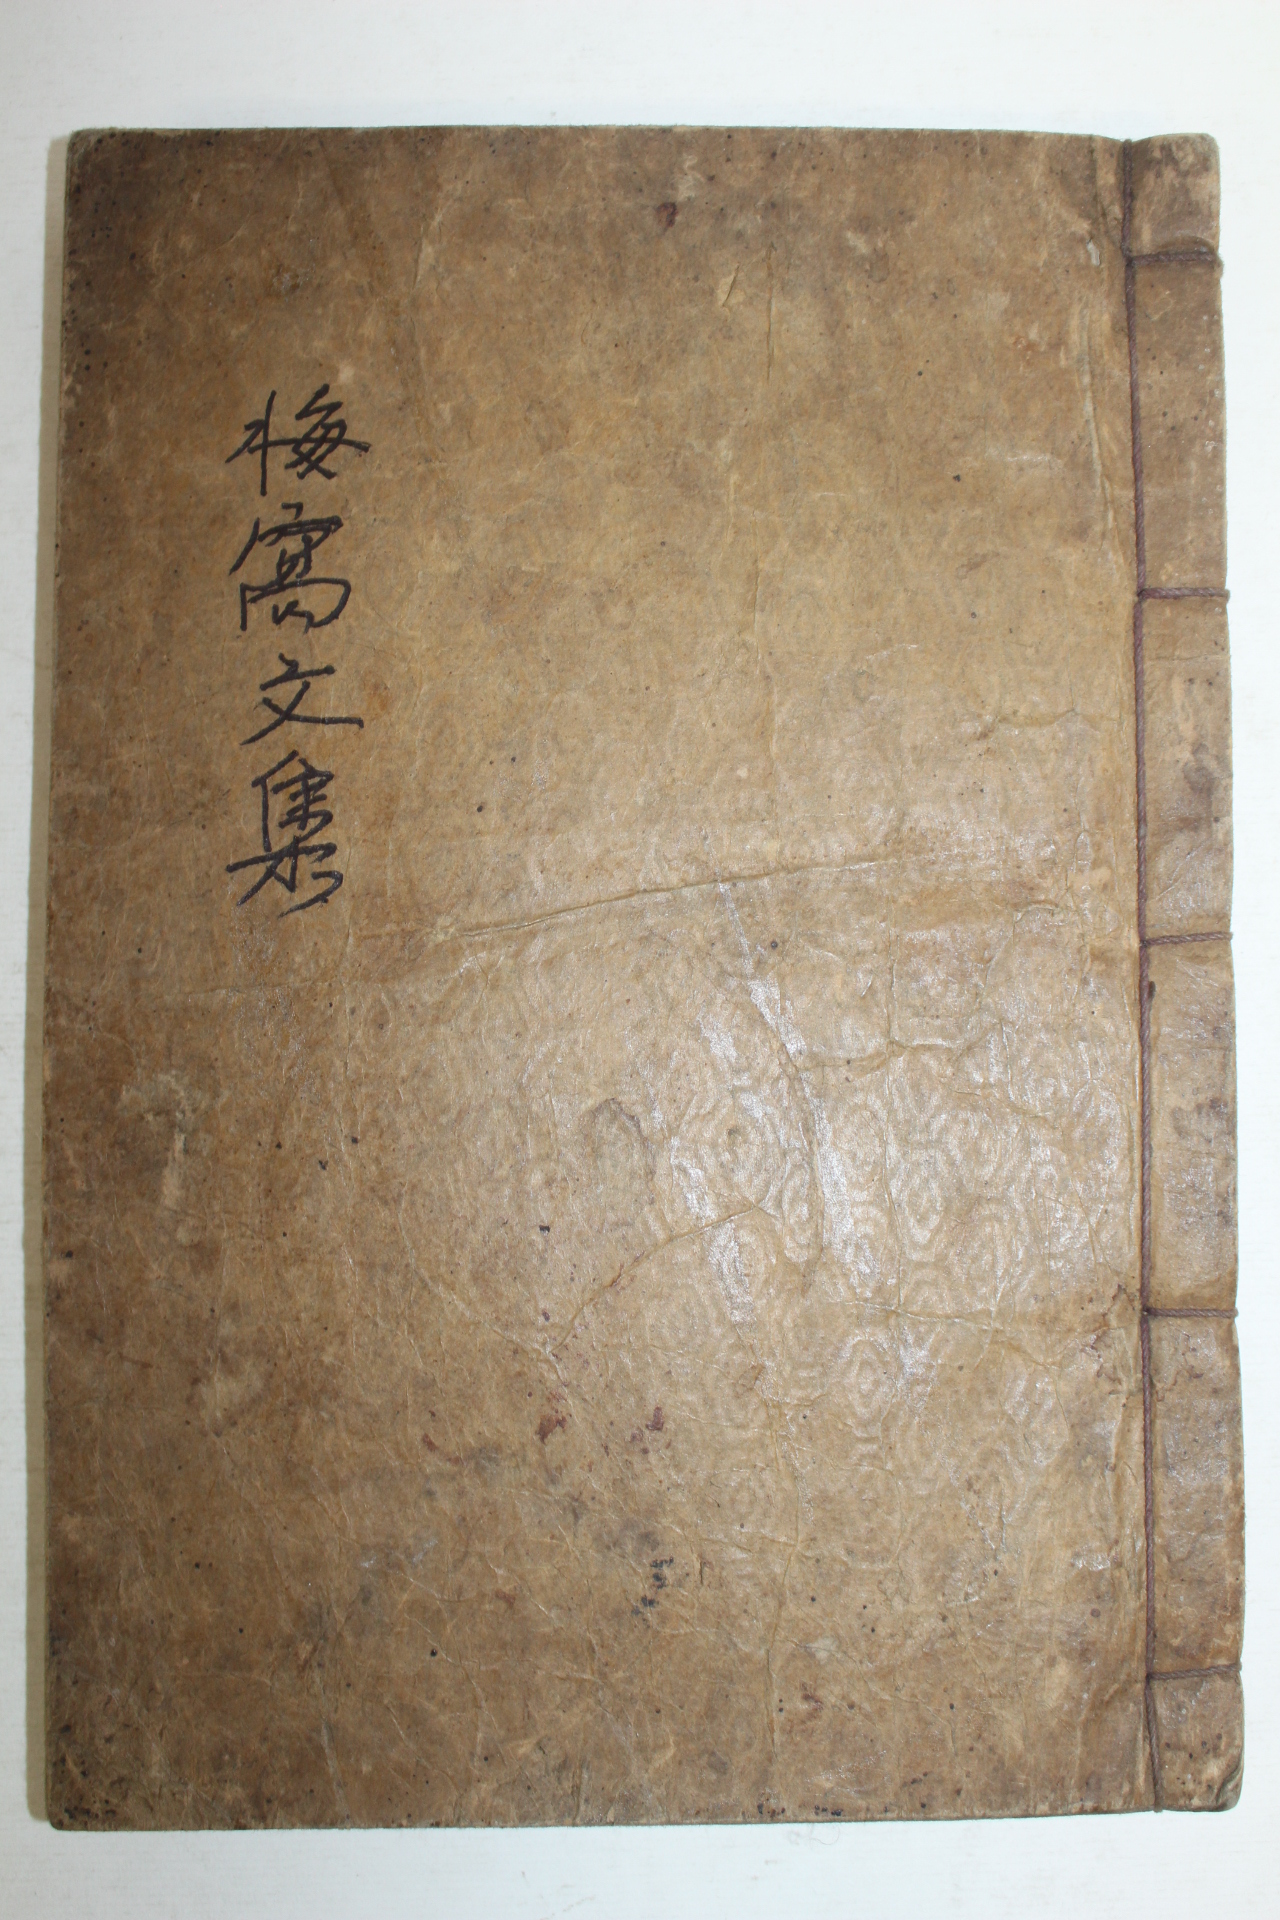 梅窩文集